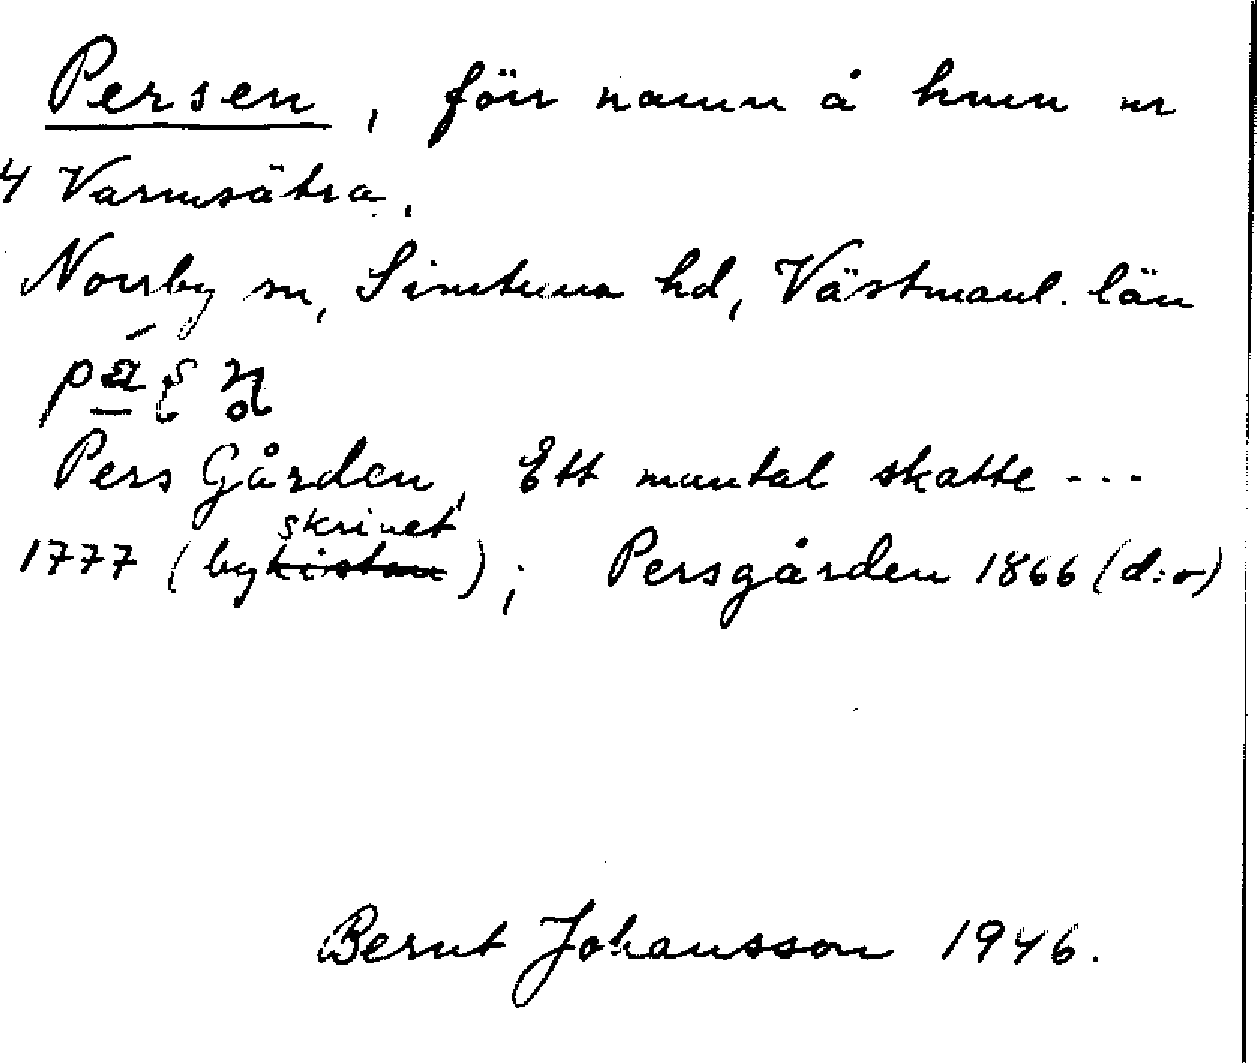 Persen, förr namn å hmn nr
4 Varmsätra.
Norrby sn, Simtuna hd, Västmanl. län
Pers Gården, Ett mantal skatte ---
skrinet
1777 (bykistan); Persgården 1866 (d:o)
Bernt Johansson 1946.